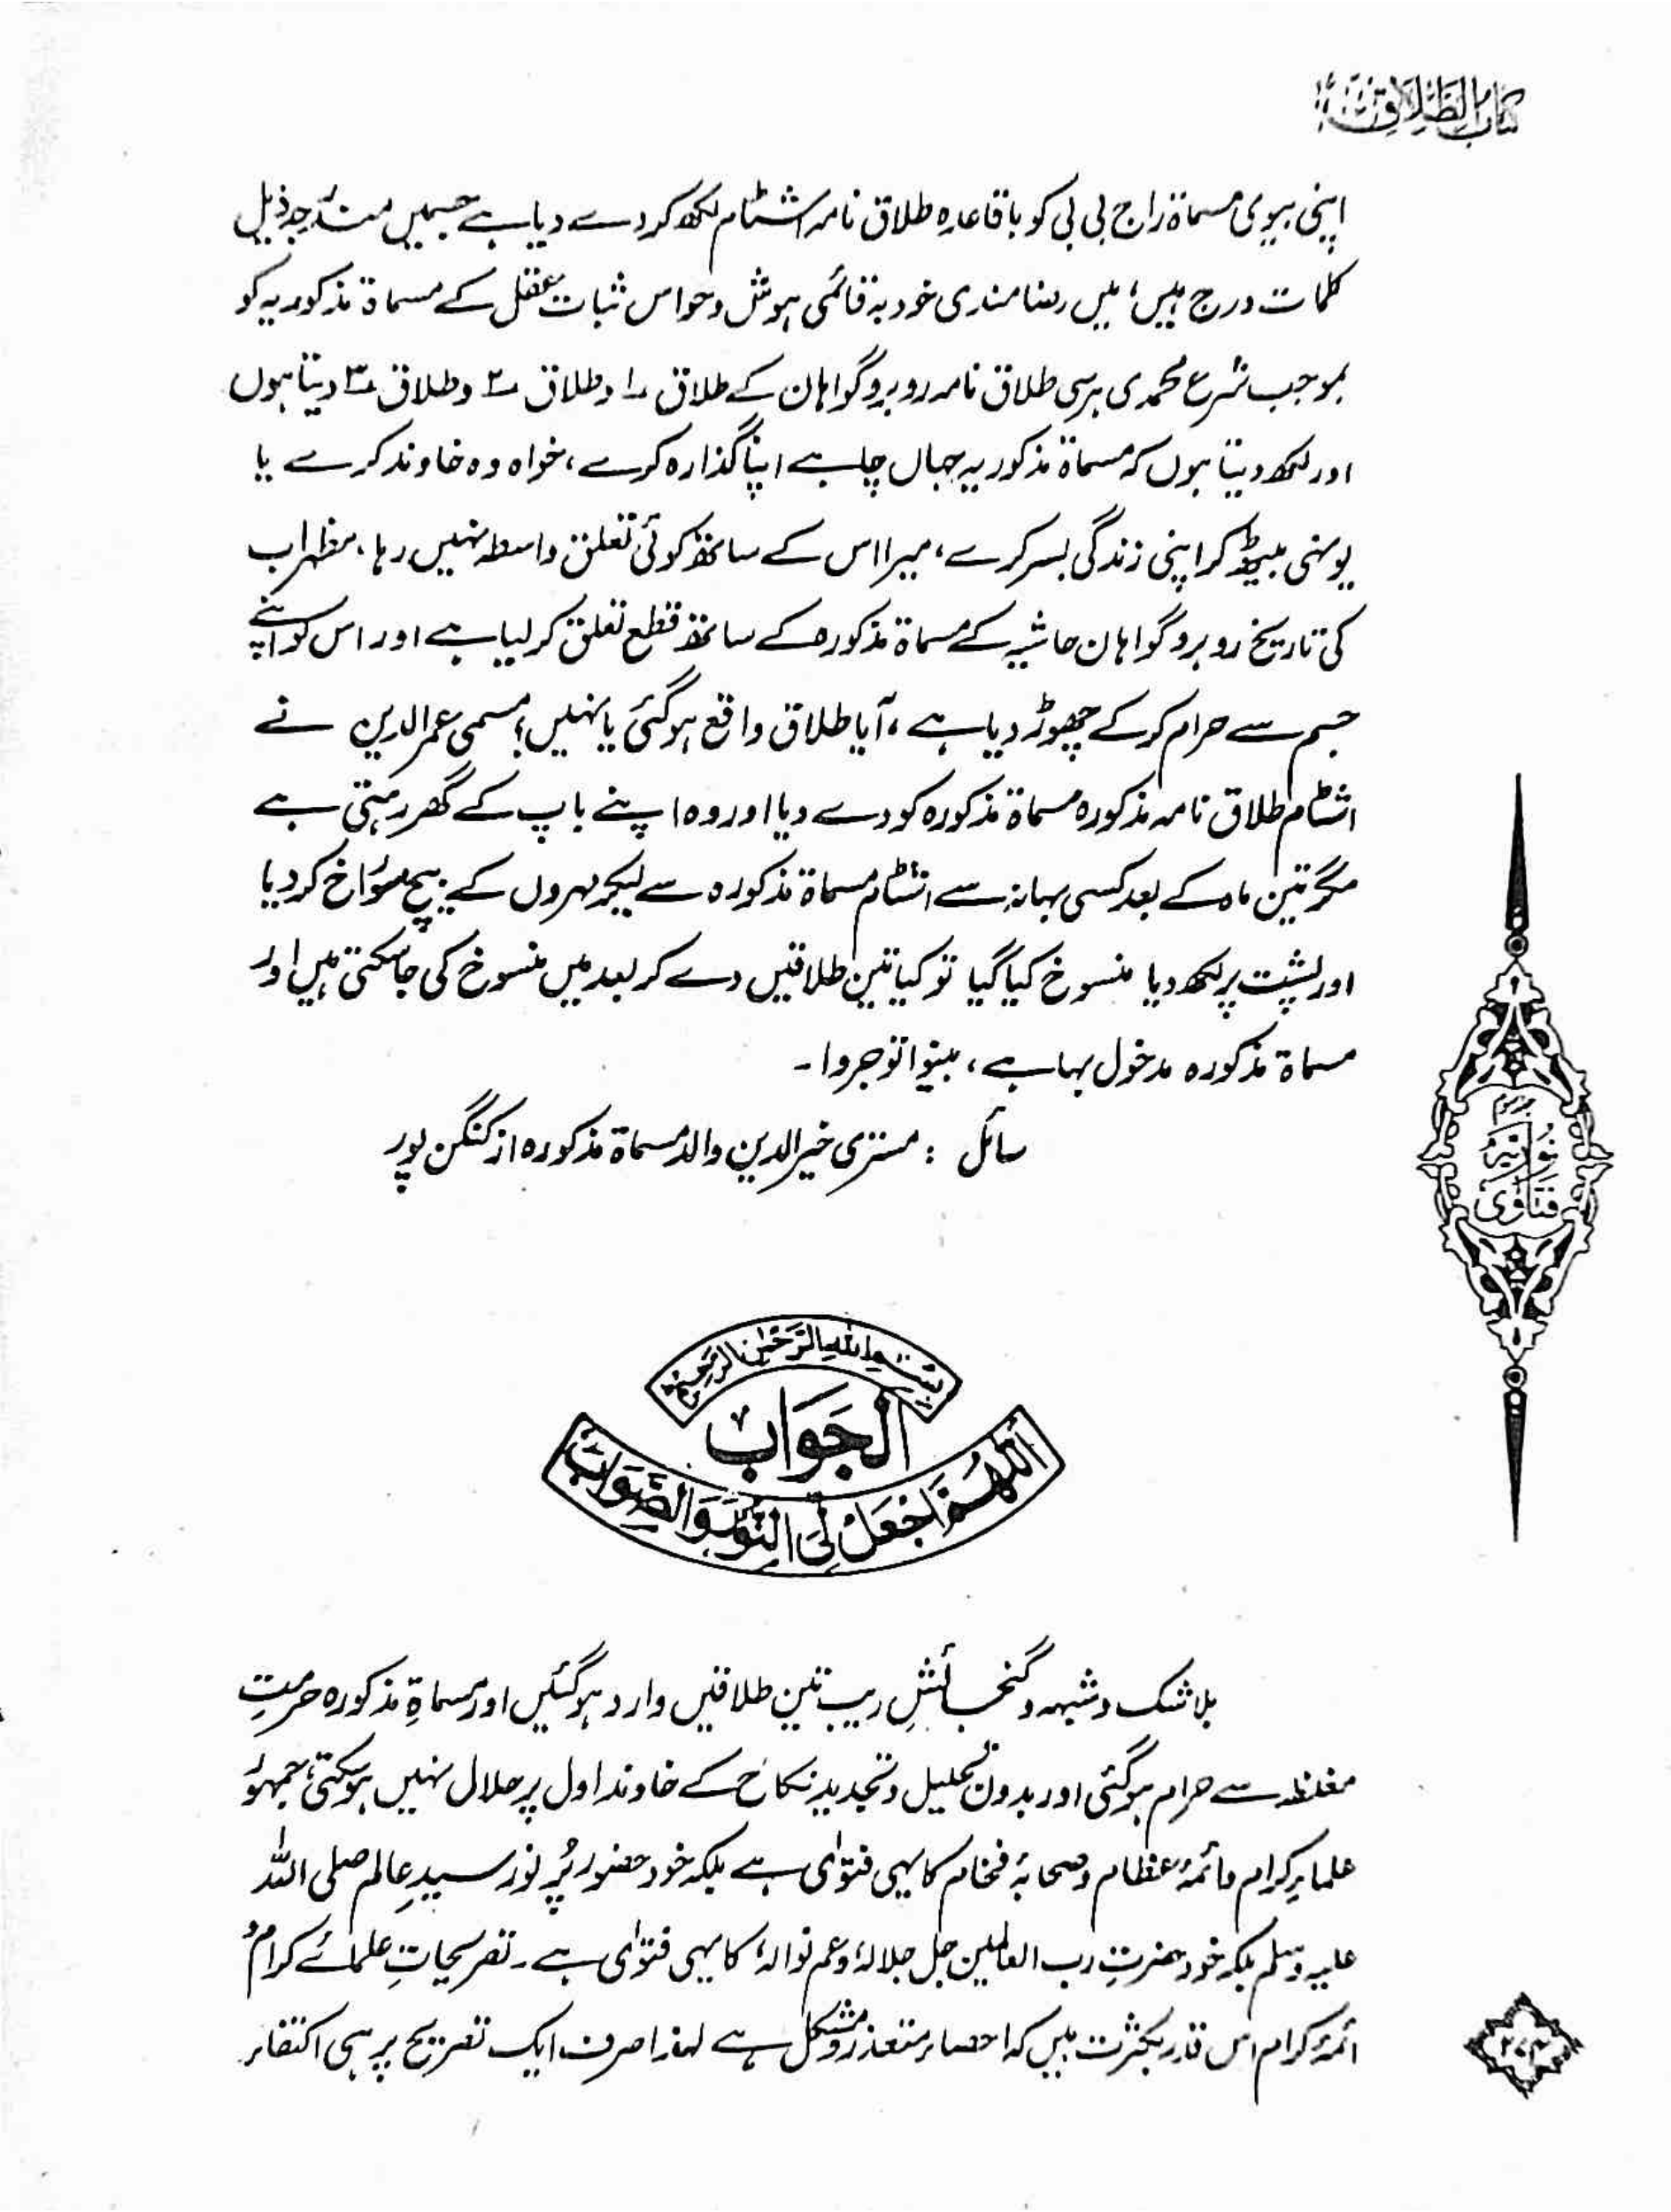 کتاب الطلاق
اپنی بیوی مسماۃ راج بی بی کو باقاعدہ طلاق نامہ اشٹام لکھ کر دے دیا ہے جسمیں مندرجہ ذیل
کلمات درج ہیں؛ میں رضامندی خود بہ قائمی ہوش و حواس ثبات عقل کے مسماۃ مذکوریہ کو
بموجب شرع محمدی برسی طلاق نامہ روبرو گواہان کے طلاق ۱ وطلاق ۲ وطلاق ۳ دیتا ہوں
اور لکھ دیتا ہوں کہ مسماۃ مذکوریہ جہاں چاہے اپنا گذارہ کرے، خواہ وہ خاوند کرے یا
یونہی بیٹھ کر اپنی زندگی بسر کرے، میرا اس کے ساتھ کوئی تعلق واسطہ نہیں رہا، مظہر اب
کی تاریخ روبرو گواہان حاشیہ کے مسماۃ مذکورہ کے ساتھ قطع تعلق کر لیا ہے اور اس کو اپنے
جسم سے حرام کر کے چھوڑ دیا ہے، آیا طلاق واقع ہو گئی یا نہیں؛ مسمی عمرالدین نے
اشٹام طلاق نامہ مذکورہ مسماۃ مذکورہ کو دے دیا اور وہ اپنے باپ کے گھر رہتی ہے
مگر تین ماہ کے بعد کسی بہانہ سے اشٹام مسماۃ مذکورہ سے لیکر مہروں کے بیچ سوراخ کر دیا
اور پشت پر لکھ دیا منسوخ کیا گیا تو کیا تین طلاقیں دے کر بعد میں منسوخ کی جا سکتی ہیں اور
مسماۃ مذکورہ مدخول بہا ہے، بینوا توجروا۔
سائل : مستری خیرالدین والد مسماۃ مذکورہ از کنگن پور
بسم الله الرحمن الرحيم
الجَوَابُ
اَللّٰهُمَّ اجْعَلْ لِيَ النُّوْرَ وَالصَّوَابَ
بلا شک و شبہہ و گنجائشِ ریب تین طلاقیں وارد ہو گئیں اور مسماۃِ مذکورہ حرمتِ
مغلظہ سے حرام ہو گئی اور بدون تحلیل و تجدید نکاح کے خاوند اول پر حلال نہیں ہو سکتی، جمہور
علماءِ کرام و ائمۂ عظام و صحابۂ فخام کا یہی فتوٰی ہے بلکہ خود حضور پُر نور سیدِ عالم صلی اللہ
علیہ وسلم بلکہ خود حضرتِ رب العالمین جل جلالہٗ و عم نوالہٗ کا یہی فتوٰی ہے۔ تصریحاتِ علمائے کرام و
ائمۂ کرام اس قدر بکثرت ہیں کہ احصاء متعذر و مشکل ہے لہذا صرف ایک تصریح پر ہی اکتفاء
فتاوی نوریہ